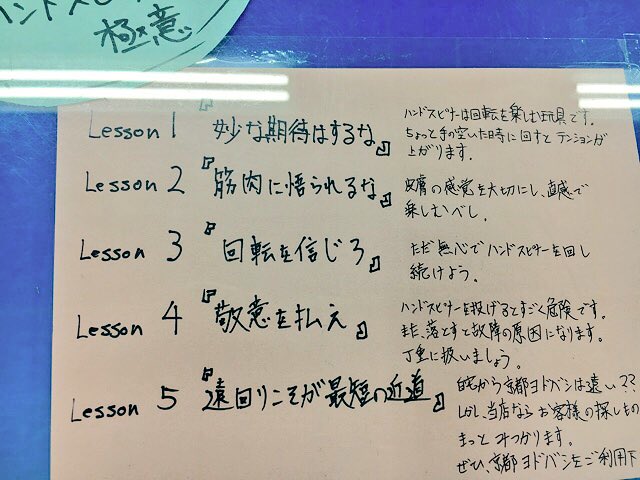 ハンドスピナー
極意
Lesson 1 『妙な期待はするな』
ハンドスピナーは回転を楽しむ玩具です。
ちょっと手の空いた時に回すとテンションが
上がります。
Lesson 2 『筋肉に悟られるな』
皮膚の感覚を大切にし、直感で
楽しむべし。
Lesson 3 『回転を信じろ』
ただ無心でハンドスピナーを回し
続けよう。
Lesson 4 『敬意を払え』
ハンドスピナーを投げるとすごく危険です。
また、落とすと故障の原因になります。
丁重に扱いましょう。
Lesson 5 『遠回りこそが最短の近道』
自宅から京都ヨドバシは遠い??
しかし、当店ならお客様の探しもの
きっとみつかります。
ぜひ、京都ヨドバシをご利用下